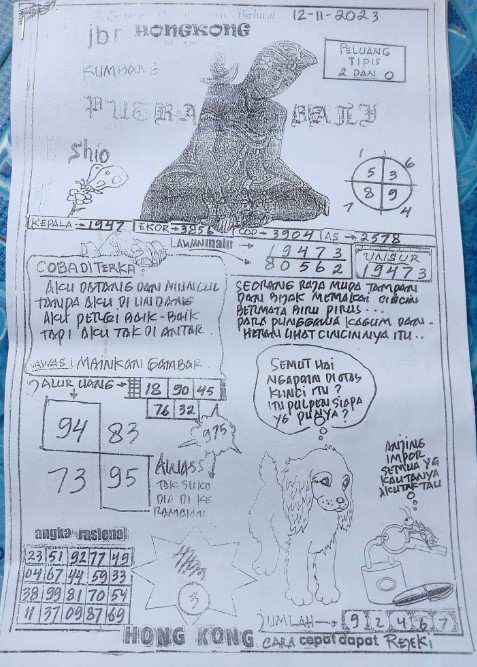 12-11-2023
jbr HONGKONG
PELUANG
TIPIS
2 DAN 0
KUMBANG
PUTRA BALI
Shio
1 6
5 3
8 9
7 4
KEPALA → 1947 EKOR → 3856 COP → 3904 AS → 2578
LAWAN MAIN → 19473
80562
UNSUR
19473
COBA DI TERKA :
AKU DATANG DAN MUNCUL
TANPA AKU DI UNDANG
AKU PERGI BAIK-BAIK
TAPI AKU TAK DI ANTAR.
SEORANG RAJA MUDA TAMPAN
DAN BIJAK MEMAKAI CINCIN
BERMATA BIRU PIRUS...
PARA PUNGGAWA KAGUM DAN
HERAN LIHAT CINCINNYA ITU..
AWAS! MAINKAN GAMBAR.
JALUR UANG → 18 90 45
76 32
975
94 83
73 95
AWASS
TAK SUKA
DIA DI KE
RAMAIAN
SEMUT HAI
NGAPAIN DI ATAS
KUNCI ITU?
ITU PULPEN SIAPA
YG PUNYA?
ANJING
IMPOR
SEMUA YG
KAU TANYA
AKU TAK TAU
angka rasional
23 51 92 77 49
04 67 44 59 33
38 99 81 70 54
11 37 09 87 69
JUMLAH → 9 2 4 6 7
HONG KONG CARA cepat dapat REJEKI